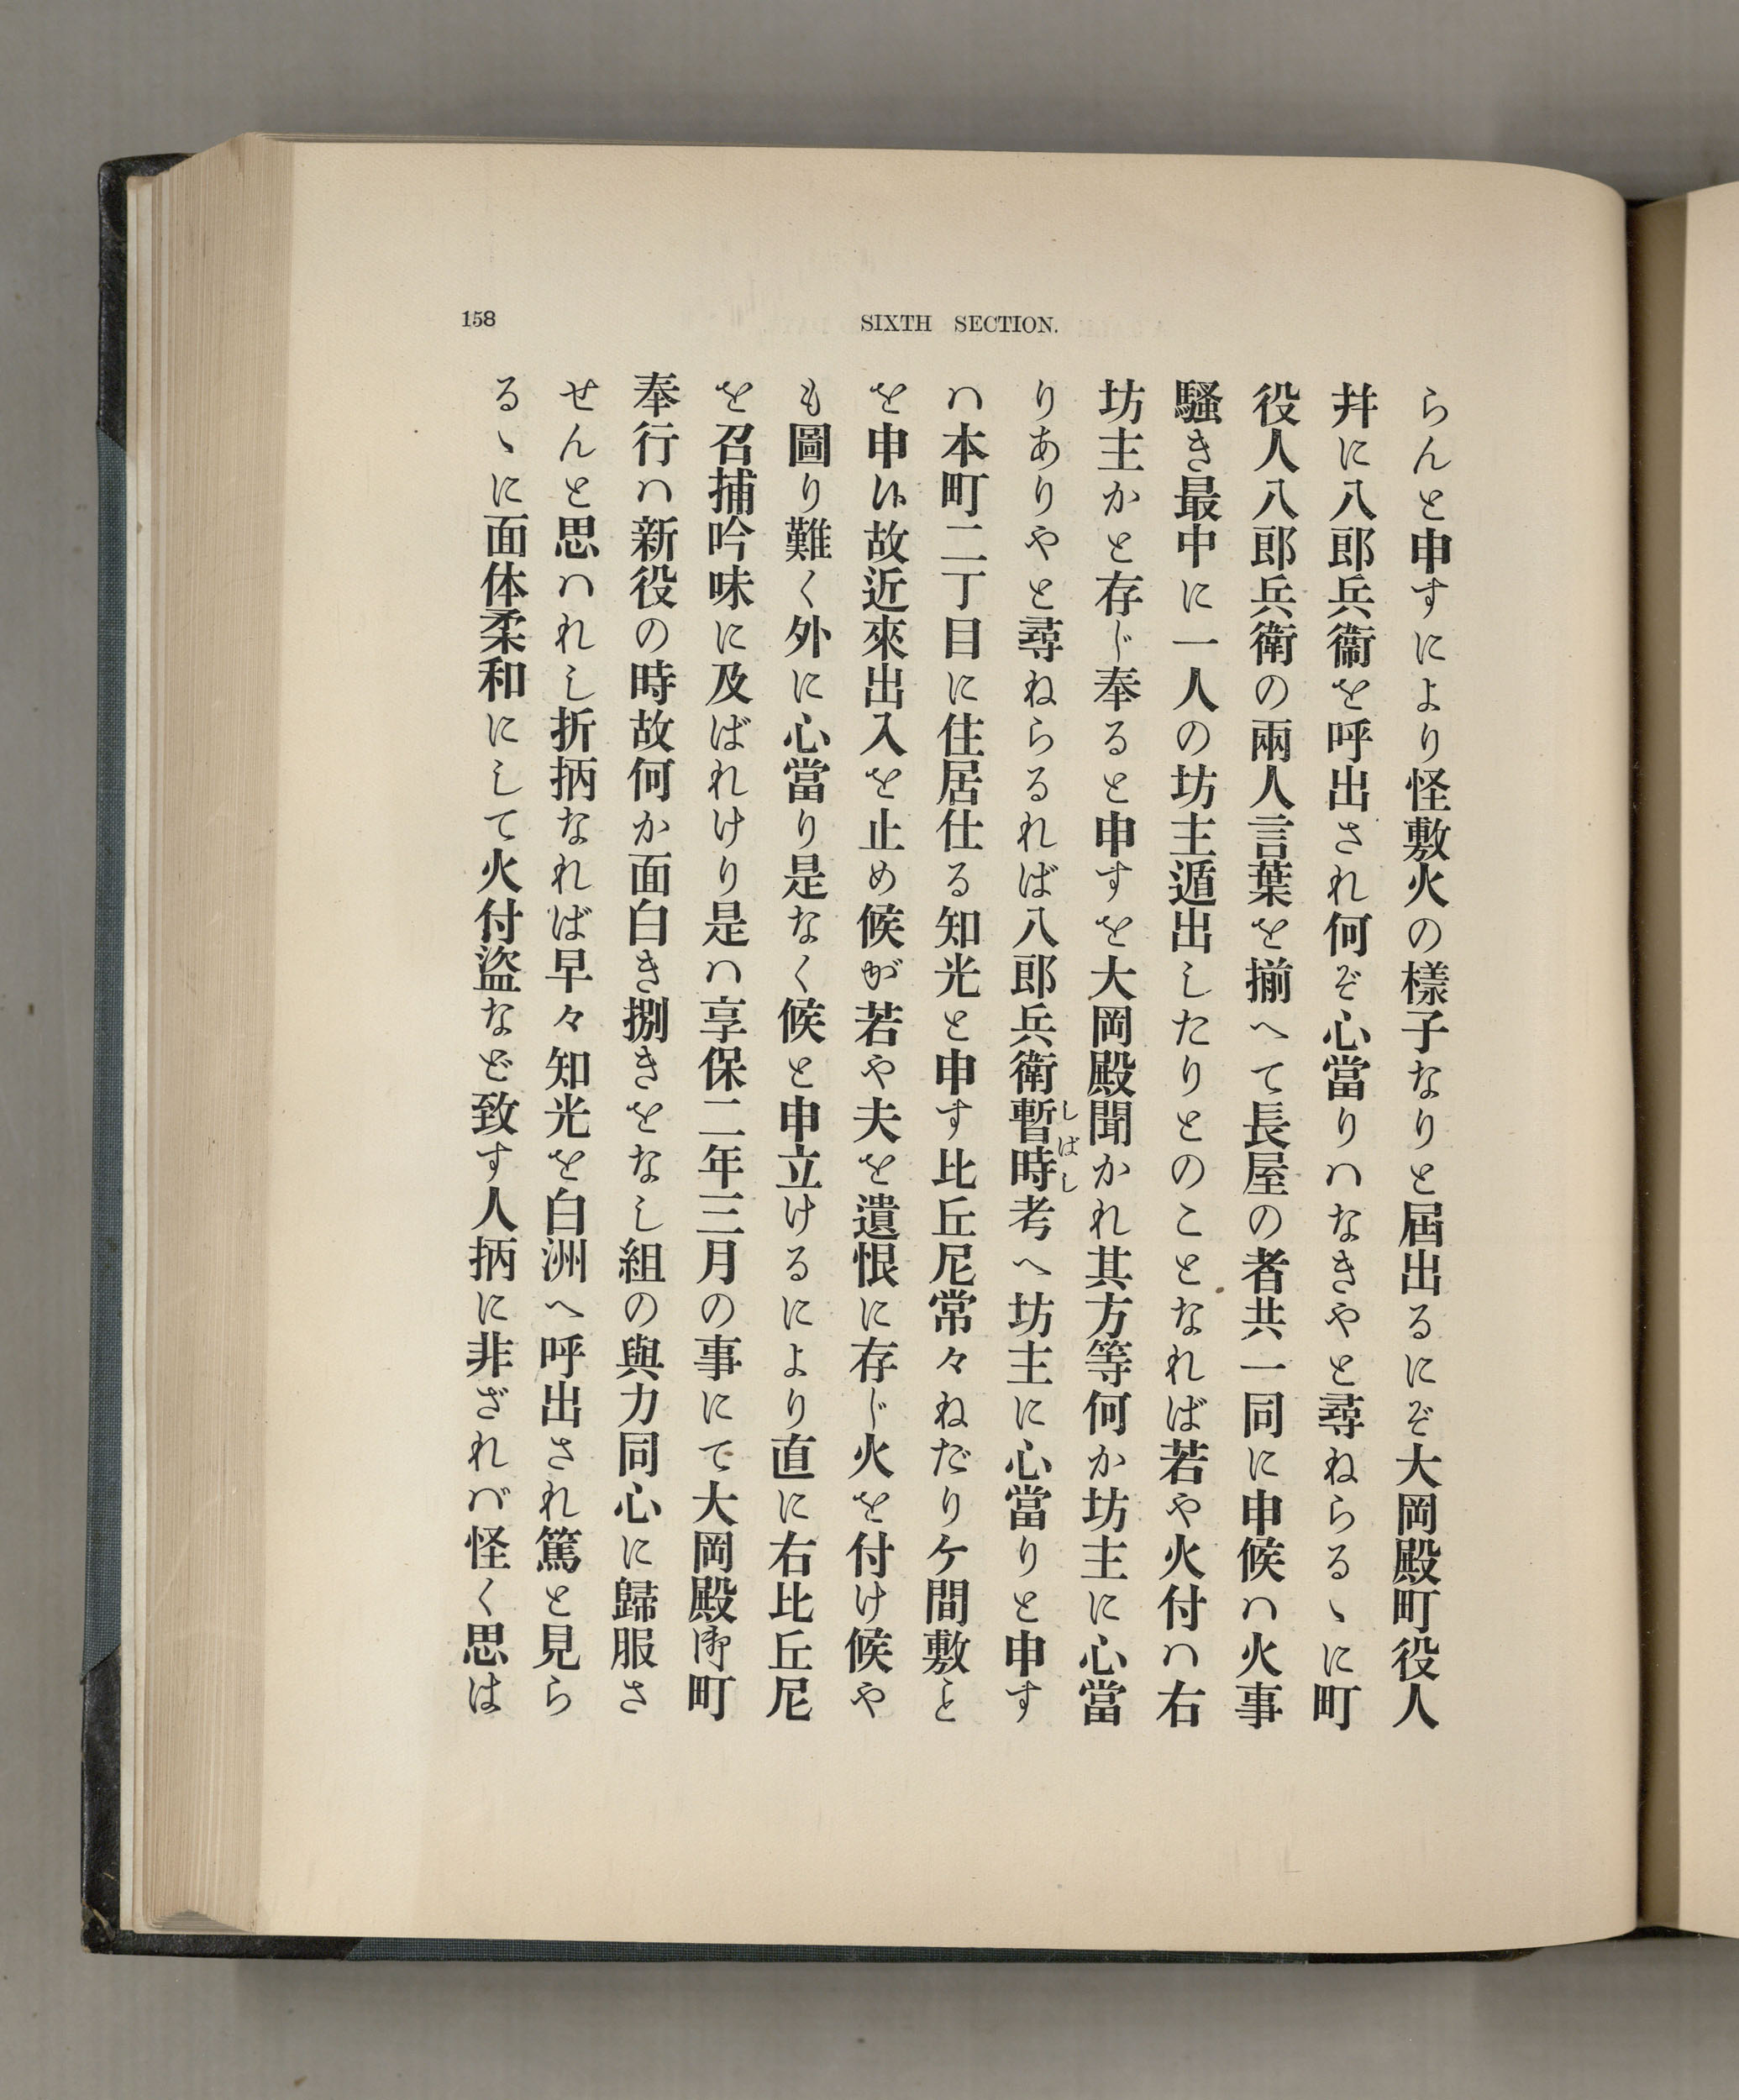 158
SIXTH SECTION.
らんと申すにより怪敷火の樣子なりと屆出るにぞ大岡殿町役人
幷に八郎兵衞を呼出され何ぞ心當りハなきやと尋ねらるゝに町
役人八郎兵衛の兩人言葉を揃へて長屋の者共一同に申候ハ火事
騷き最中に一人の坊主遁出したりとのことなれば若や火付ハ右
坊主かと存じ奉ると申すを大岡殿聞かれ其方等何か坊主に心當
りありやと尋ねらるれば八郎兵衛暫時考へ坊主に心當りと申す
しばし
ハ本町二丁目に住居仕る知光と申す比丘尼常々ねだりケ間敷と
を申ゆ故近來出入を止め候が若や夫を遺恨に存じ火を付け候や
も圖り難く外に心當り是なく候と申立けるにより直に右比丘尼
を召捕吟味に及ばれけり是ハ享保二年三月の事にて大岡殿御町
奉行ハ新役の時故何か面白き捌きをなし組の與力同心に歸服さ
せんと思ハれし折柄なれば早々知光を白洲へ呼出され篤と見ら
るゝに面体柔和にして火付盜など致す人柄に非ざれバ怪く思は